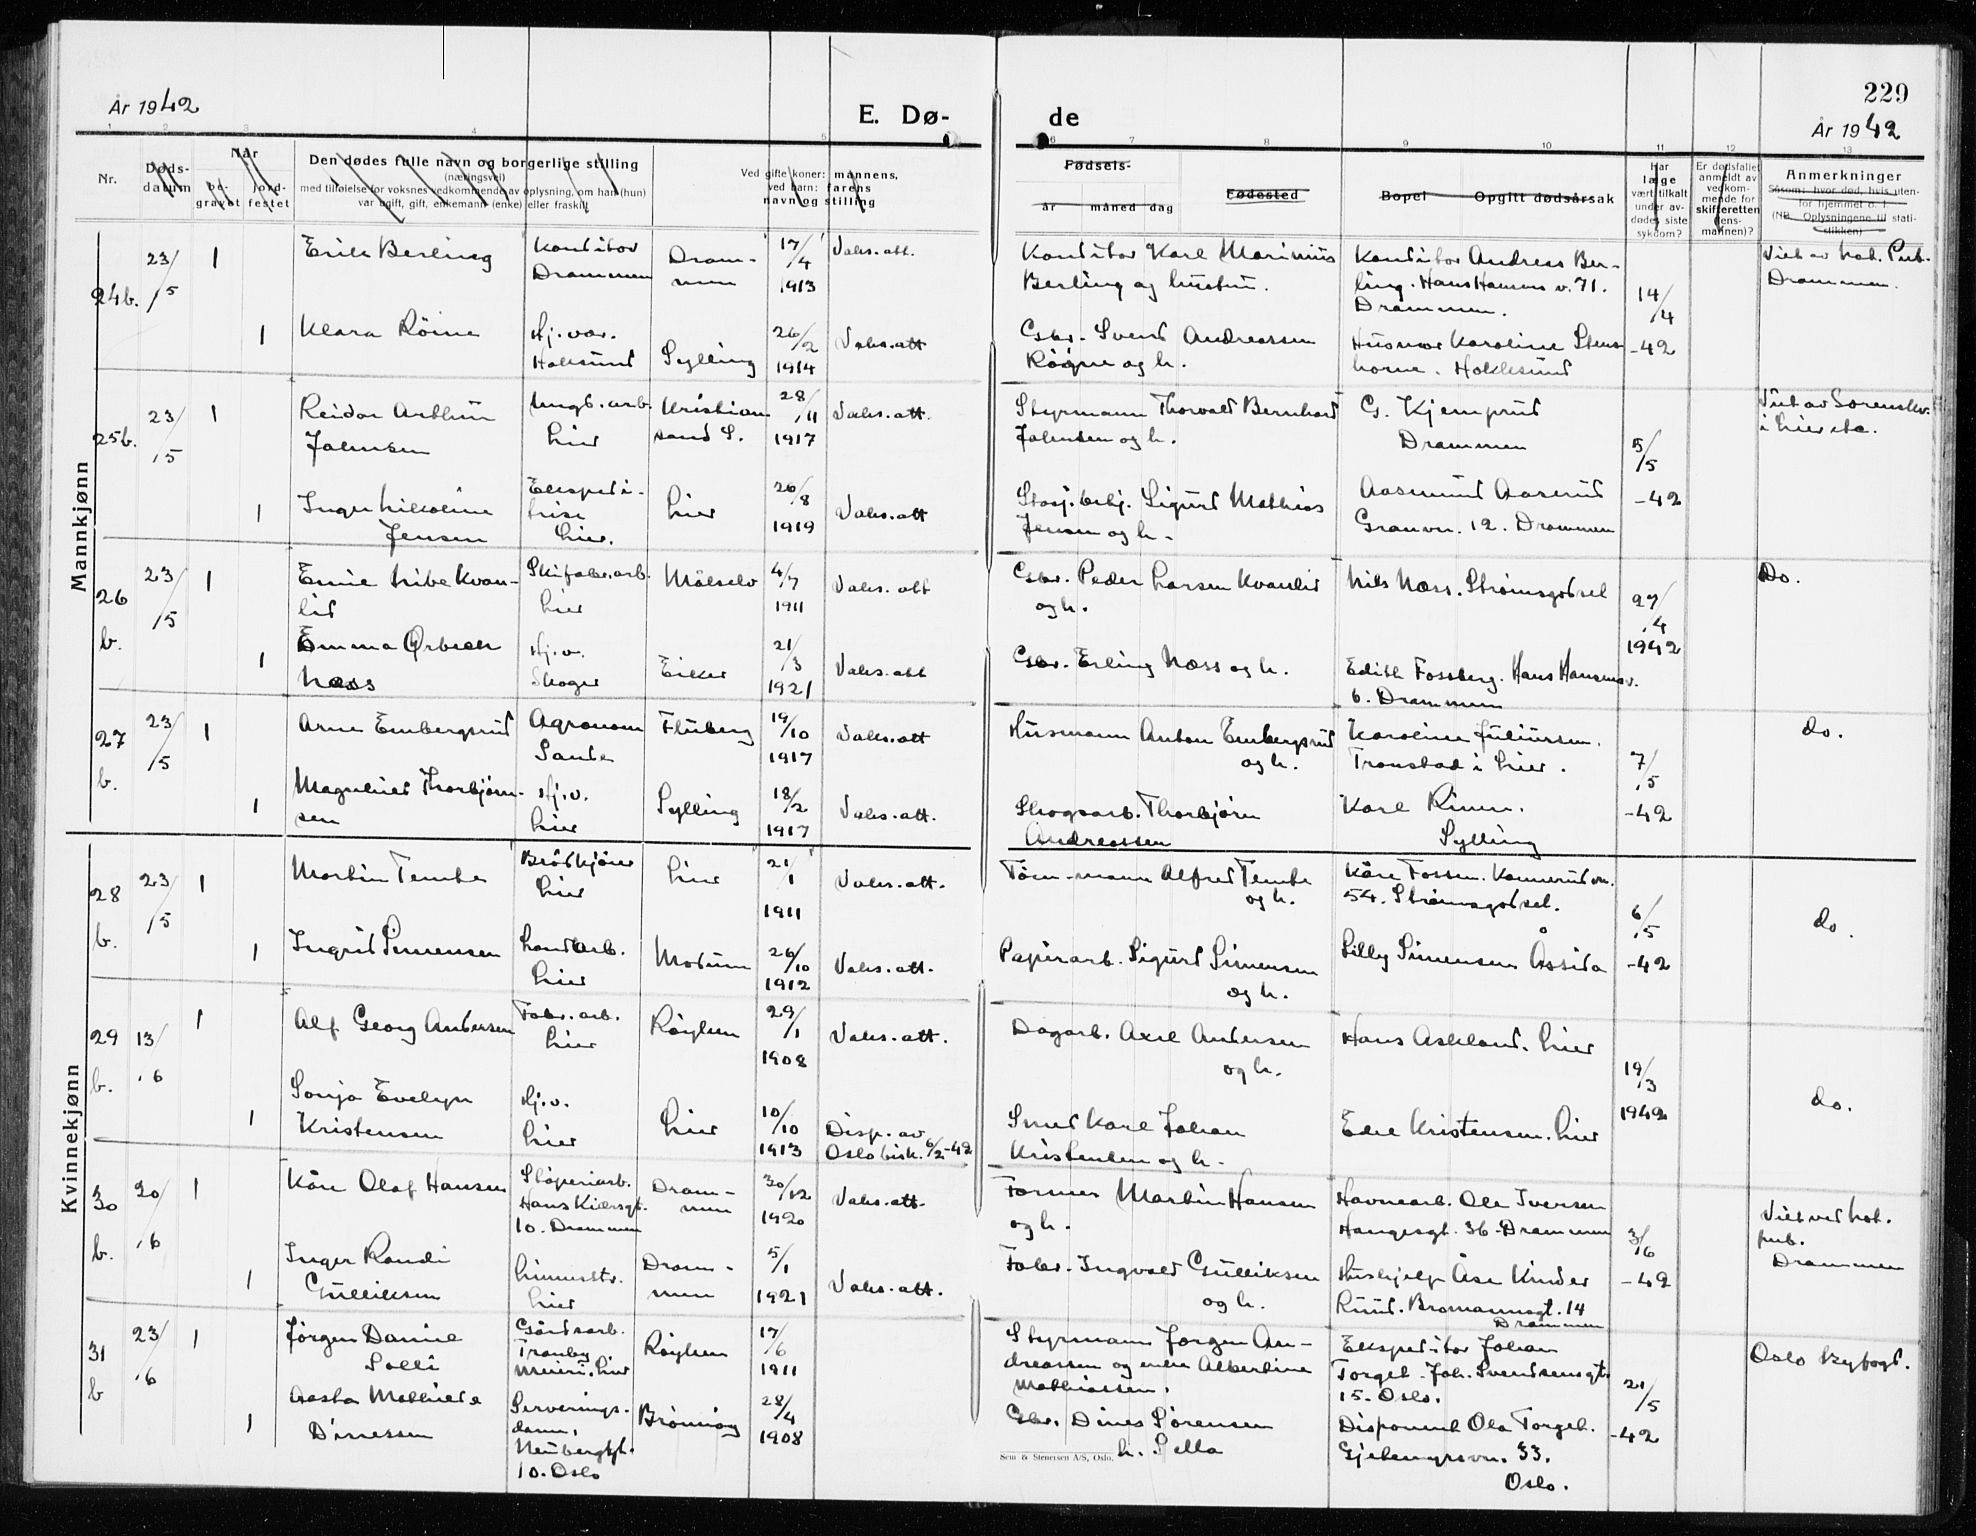 År 1942
E. Dø-
de
229
År 1942
1 2 3 4 5 6 7 8 9 10 11 12 13
Nr.
Døds-
datum
Når
be-
gravet
jord-
festet
Den dødes fulle navn og borgerlige stilling
(næringsvei)
med tilføielse for voksnes vedkommende av oplysning, om han (hun)
var ugift, gift, enkemann (enke) eller fraskilt
Ved gifte koner: mannens,
ved barn: farens
navn og stilling
Fødsels-
år måned dag
Fødested
Bopel Opgitt dødsårsak
Har
læge
vært tilkalt
under av-
dødes siste
sykdom?
Er dødsfallet
anmeldt av
vedkom-
mende for
skifteretten
(lens-
mannen)?
Anmerkninger
Såsom: hvor død, hvis uten-
for hjemmet o. l.
(NB. Oplysningene til stati-
stikken)
Mannkjønn
Kvinnekjønn
24b. 23/5 1 Erik Berling
Konditor
Drammen
Dram-
men
17/4
1913
Vaks. att.
Konditor Karl Marinius
Berling og hustru.
Konditor Andreas Ber-
ling. Hans Hansens v. 71.
Drammen.
14/4
-42
Viet av not. Pub.
Drammen.
1 Klara Röine
Hj. vær.
Hokksund
Sylling
26/2
1914
Vaks. att
Gbr. Svend Andreassen
Röine og h.
Husmor Karoline Stens
horne. Hokksund
25b. 23/5 1 Reidar Arthur
Johnsen
Ungb. arb.
Lier
Kristian
sand S.
28/11
1917
Vaks. att.
Styrmann Thorvald Bernhard
Johnsen og h.
G. Kjemprud
Drammen
5/5
-42
Viet av Sorenskr.
i Lier etc.
1 Inger Nikoline
Jensen
Ekspedi-
trise
Lier.
Lier
26/8
1919
Vaks. att
Stasj. betj. Sigurd Mathias
Jensen og h.
Aasmund Aaserud
Granvn. 12. Drammen
26
b.
23/5 1 Enie Nibe Kvan-
lid
Skifabr. arb.
Lier
Målselv
4/7
1911
Vaks. att
Gbr. Peder Larsen Kvanlid
og h.
Nils Næss. Strømsgodset
27/4
1942
Do.
1 Emma Ørbeck
Næss
Hj. v.
Skoger
Eiker
21/3
1921
Vaks. att
Gbr. Erling Næss og h.
Edith Fossberg. Hans Hansens v.
6. Drammen
27
b.
23/5 1 Arne Embergsrud
Agronom
Sande
Fluberg
19/10
1917
Vaks. att
Husmann Anton Embergsrud
og h.
Karoline Juliussen.
Transtad i Lier.
7/5
-42
do.
1 Magnhild Thorbjörn-
sen
Hj. v.
Lier
Sylling
18/2
1917
Vaks. att.
Skogsarb. Thorbjörn
Andreassen
Karl Rinen.
Sylling
28
b.
23/5 1 Martin Tembe
Brödkjörer
Lier
Lier
21/1
1911
Vaks. att.
Töm-mann Alfred Tembe
og h.
Kåre Fossen. Konnerudvn.
54. Strømsgodset.
6/5
-42
do.
1 Ingrid Simensen
Landarb.
Lier
Modum
26/10
1912
Vaks. att.
Papirarb. Sigurd Simensen
og h.
Lilly Simensen Åssida
29
b.
13/6 1 Alf Georg Andersen
Fabr. arb.
Lier
Røyken
29/1
1908
Vaks. att.
Dagarb. Axel Andersen
og h.
Hans Askland. Lier
19/3
1942
do.
1 Sonja Evelyn
Kristensen
Hj. v.
Lier
Lier
10/10
1913
Disp. av
Oslo bisk. 6/2-42
Smed Karl Johan
Kristensen og h.
Edel Kristensen. Lier
30
b.
20/6 1 Kåre Olaf Hansen
Støperiarb.
Hans Kiærsgt.
10. Drammen
Dram-
men
30/12
1920
Vaks. att.
Former Martin Hansen
og h.
Havnearb. Ole Iversen
Haugesgt. 36. Drammen
3/6
-42
Viet ved not.
pub.
Drammen
1 Inger Randi
Gulliksen
Lier
Dram-
men
5/1
1921
Vaks. att.
Fabr. Ingvald Gulliksen
og h.
Hushjelp Åse Kinder
Ruud. Bromannsgt. 14
Drammen
31
b
23/6 1 Jörgen Daniel
Solli
Gårdsarb.
Tranby
Meieri. Lier
Røyken
17/6
1911
Styrmann Jørgen An-
dreassen og enke Albertine
Mathiassen.
Ekspeditor Johan
Torget. Joh. Svendsensgt.
15. Oslo.
21/5
-42
Oslo byfogd.
1 Aasta Mathilde
Dinessen
Serverings-
dame,
Neuberggt.
10. Oslo
Brönnöy
28/4
1908
Gbr. Dines Sørensen
h. Sella
Disponent Ola Torget.
Gjetemyrsvn. 33.
Oslo.
Sem & Stenersen A/S, Oslo.